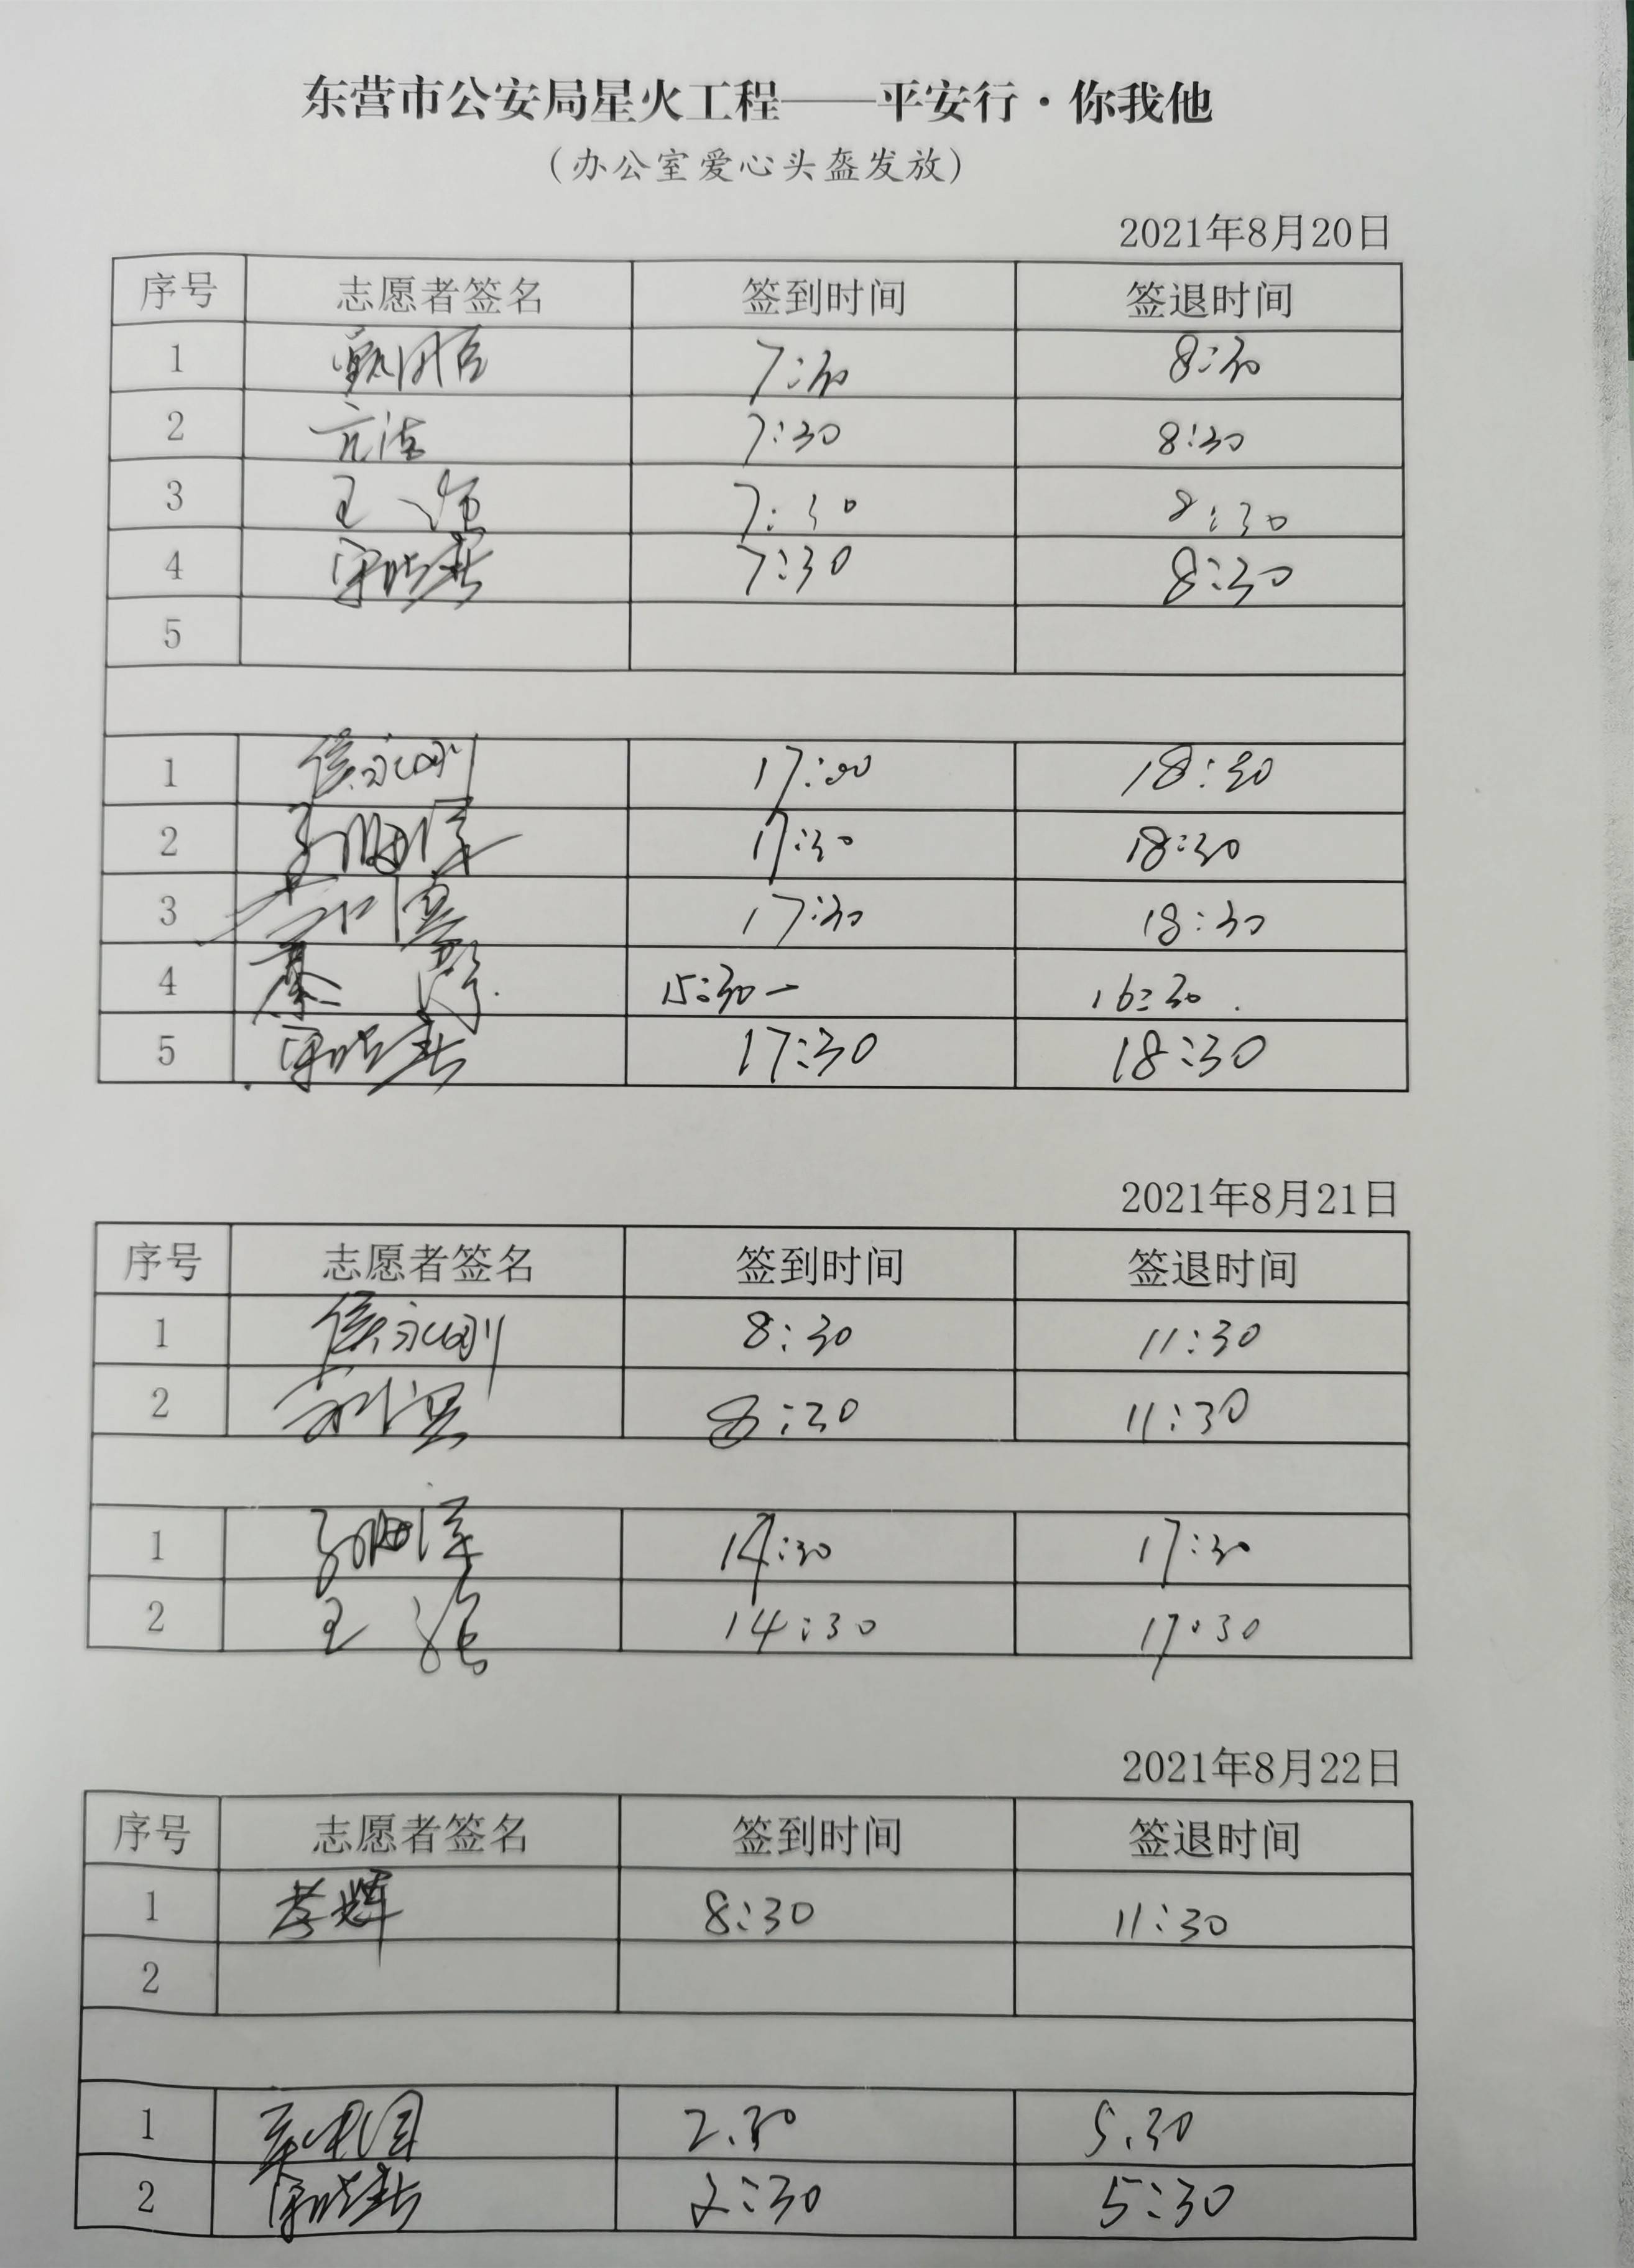 东营市公安局星火工程——平安行·你我他
（办公室爱心头盔发放）
2021年8月20日
序号 志愿者签名 签到时间 签退时间
1 7:30 8:30
2 亓浩 7:30 8:30
3 王强 7:30 8:30
4 7:30 8:30
5
1 侯永刚 17:30 18:30
2 17:30 18:30
3 17:30 18:30
4 15:30- 16:30.
5 17:30 18:30
2021年8月21日
序号 志愿者签名 签到时间 签退时间
1 侯永刚 8:30 11:30
2 8:30 11:30
1 14:30 17:30
2 王强 14:30 17:30
2021年8月22日
序号 志愿者签名 签到时间 签退时间
1 8:30 11:30
2
1 2.30 5.30
2 2:30 5:30